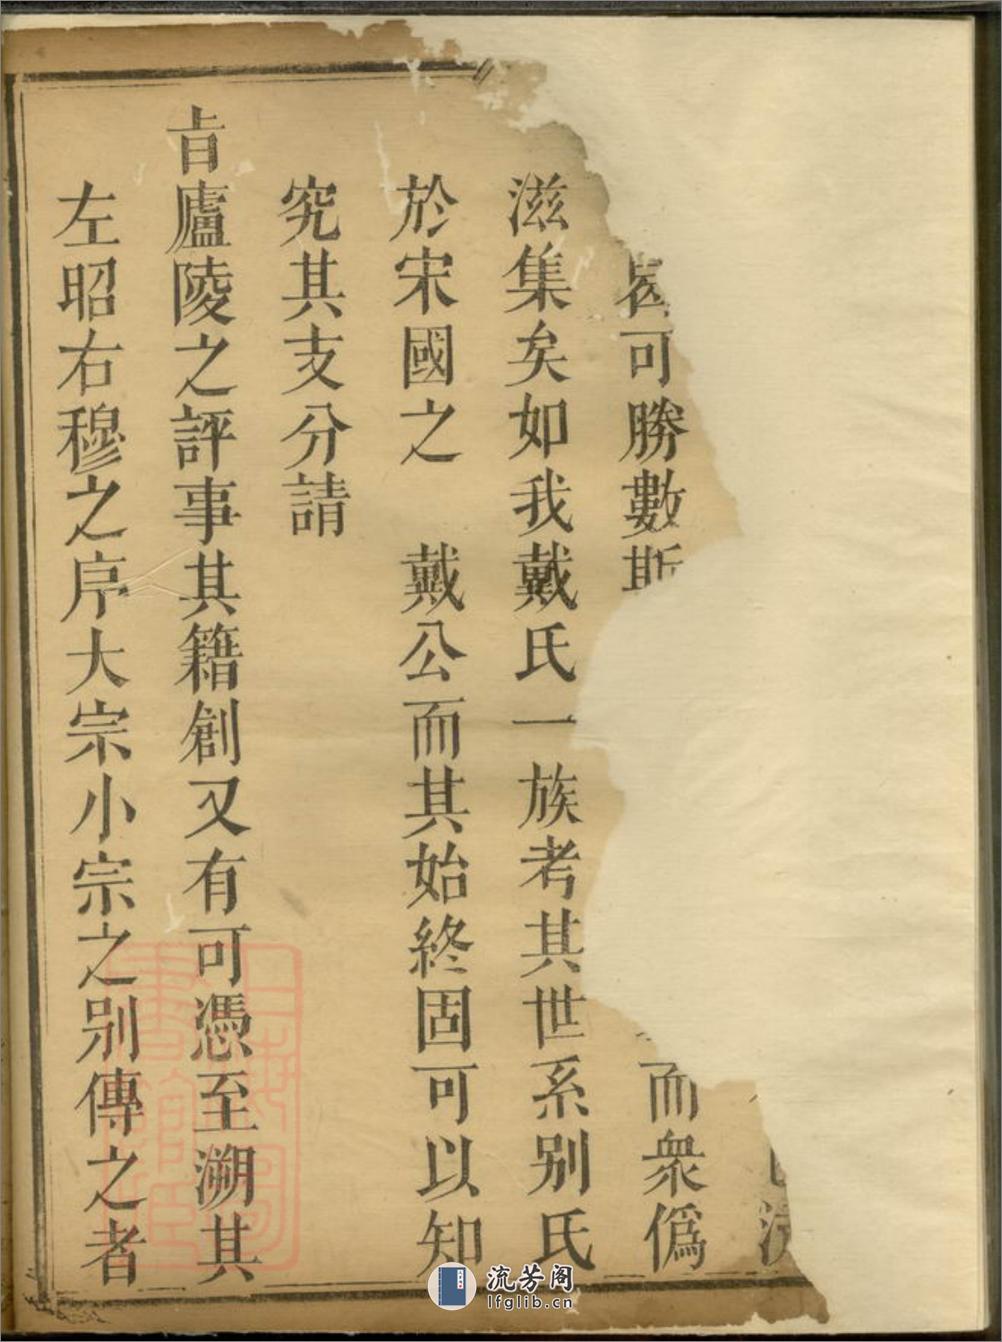 可勝數斯
而衆僞
滋集矣如我戴氏一族考其世系別氏
於宋國之　戴公而其始終固可以知
究其支分請
旨廬陵之評事其籍創又有可憑至溯其
左昭右穆之序大宗小宗之別傳之者
上海圖書館藏
流芳阁
lfglib.cn